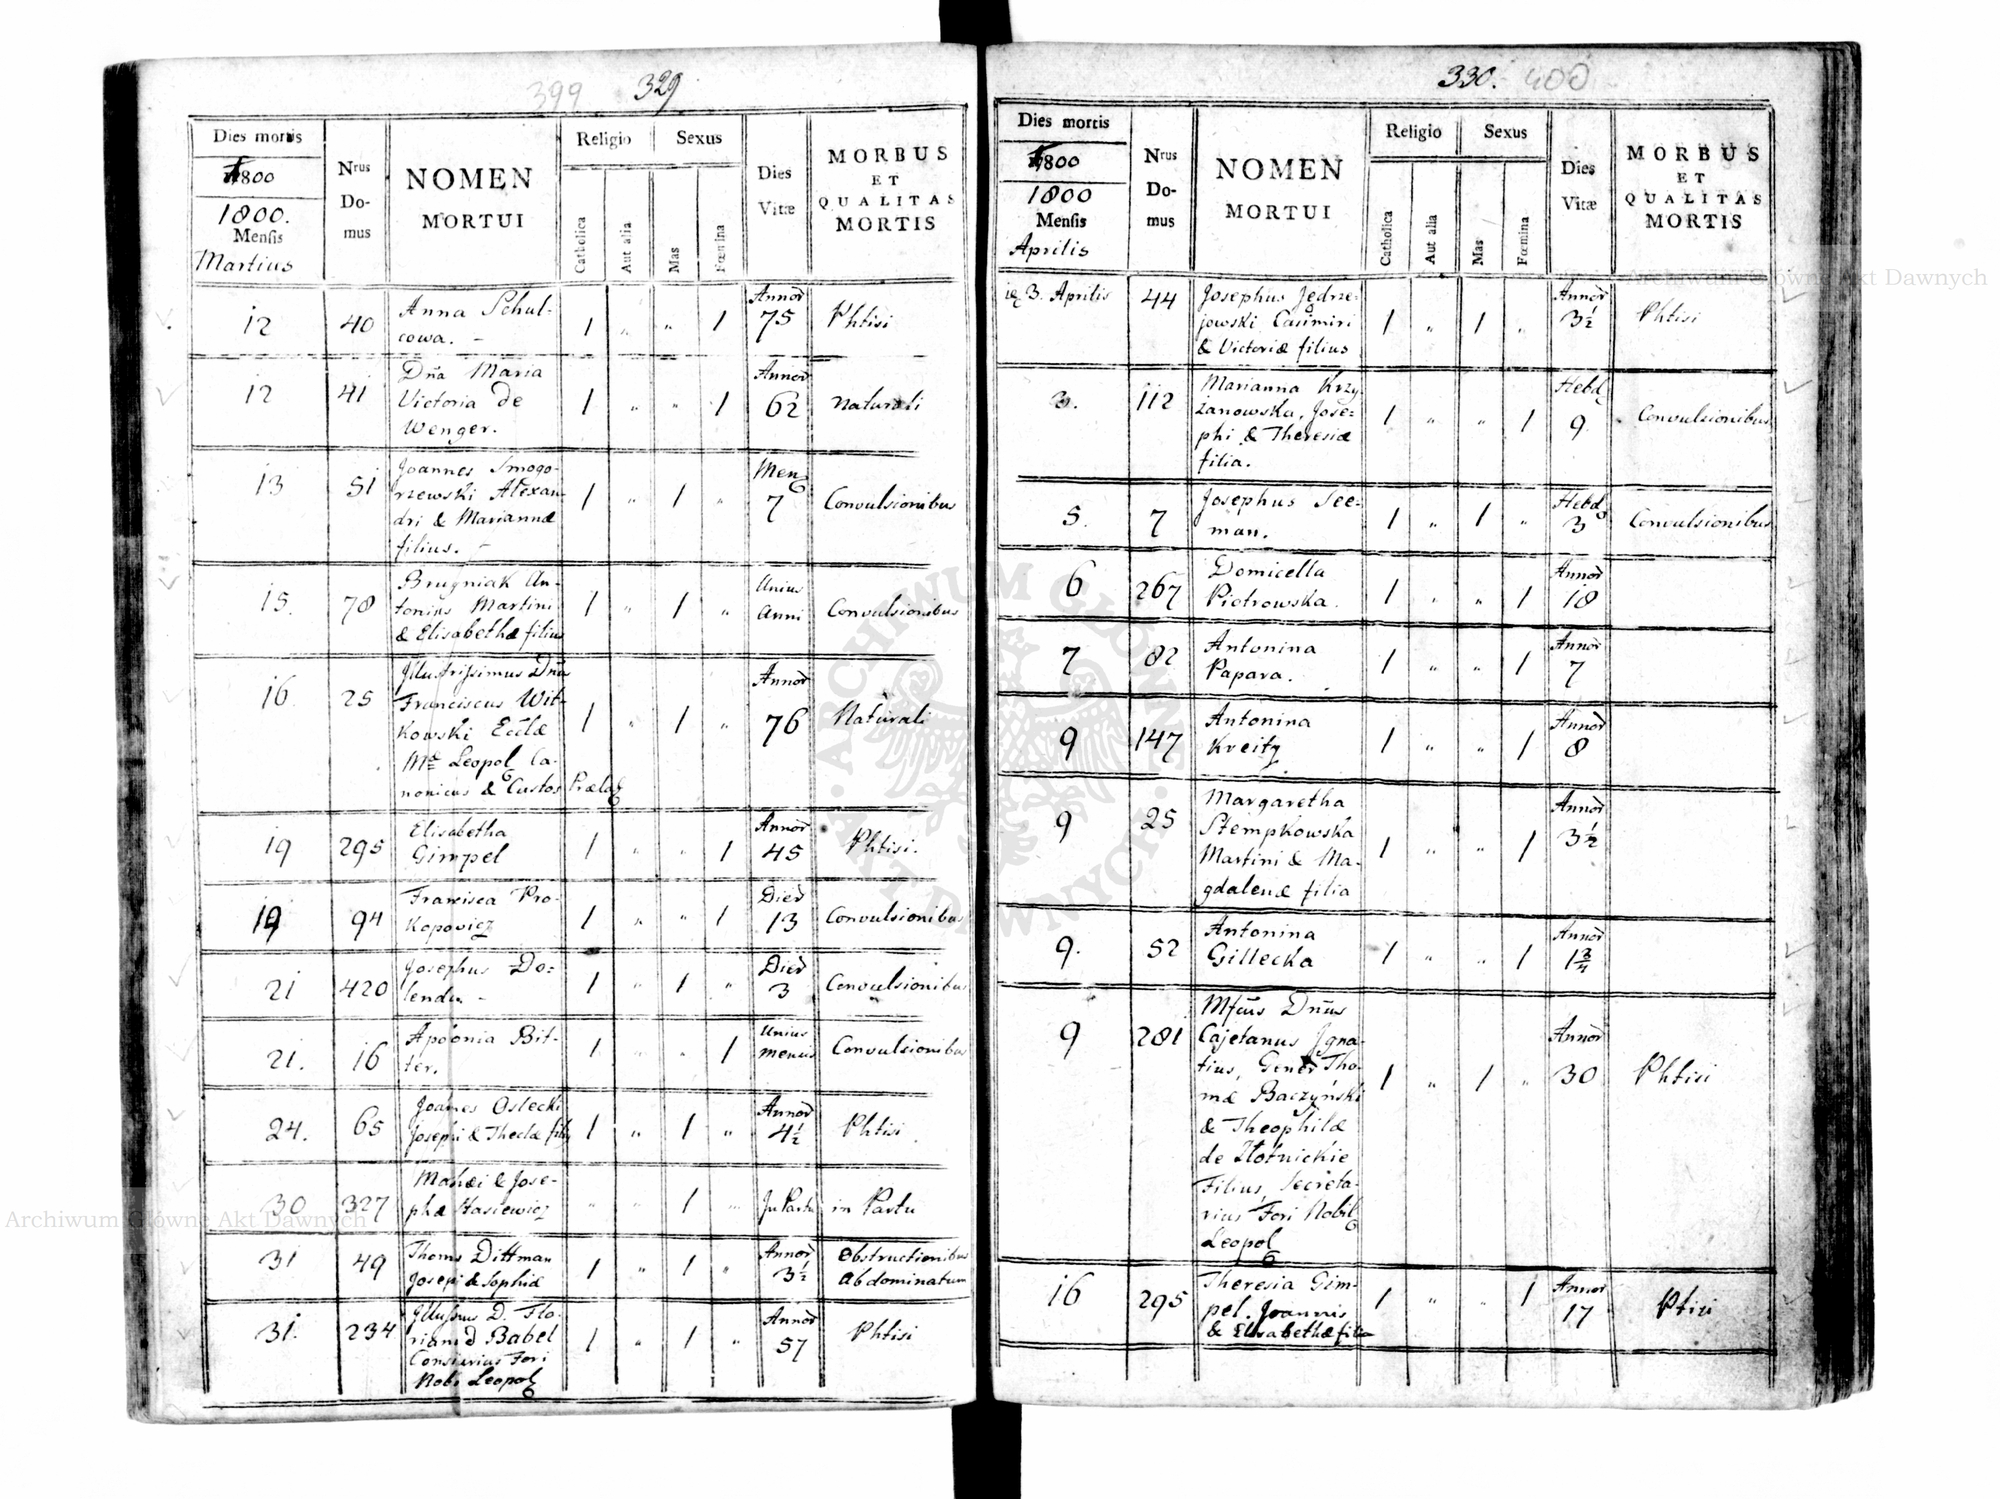 399 329
Dies mortis
1800
1800.
Mensis
Martius
Nrus
Do-
mus
NOMEN
MORTUI
Religio
Catholica
Aut alia
Sexus
Mas
Fœmina
Dies
Vitæ
MORBUS
ET
QUALITAS
MORTIS
12 40 Anna Schul-
cowa. - 1 " " 1 Annor 75 Phtisi
12 41 Dña Maria
Victoria de
Wenger. 1 " " 1 Annor 62 Naturali
13 51 Joannes Smogo-
rzewski Alexan-
dri & Mariannæ
filius. - 1 " 1 " Mens 7 Convulsionibus
15. 78 Brugniak An-
tonius Martini
& Elisabethæ filius 1 " 1 " Unius Anni Convulsionibus
16. 25 Illustrissimus Dñus
Franciscus Wit-
kowski Eccłæ
Mæ Leopol Ca-
nonicus & Custos Prælat 1 " 1 " Annor 76 Naturali
19 295 Elisabetha
Gimpel 1 " " 1 Annor 45 Phtisi.
19 94 Francisca Pro-
kopovicz 1 " " 1 Dier 13 Convulsionibus
21 420 Josephus Do-
lendu - 1 " 1 " Dier 3 Convulsionibus
21. 16 Apolonia Bit-
ter. 1 " " 1 Unius mensis Convulsionibus
24. 65 Joannes Ostecki
Josephi & Theclæ fily 1 " 1 " Annor 4½ Phtisi
30 327 Mathæi & Jose-
phæ Stasiewicz " " 1 " In Partu in Partu
31 49 Thoms Dittman
Josepi & Sophiæ 1 " 1 " Annor 3½ Obstructionibus
Abdominatum
31. 234 Illussmus D. Flo-
rianus Babel
Consiarius Fori
Nobi Leopol 1 " 1 " Annor 57 Phtisi
330. 400
Dies mortis
1800
1800
Mensis
Aprilis
Nrus
Do-
mus
NOMEN
MORTUI
Religio
Catholica
Aut alia
Sexus
Mas
Fœmina
Dies
Vitæ
MORBUS
ET
QUALITAS
MORTIS
3. Aprilis 44 Josephus Jędrze-
jowski Casimiri
& Victoriæ filius 1 " 1 " Annor 3½ Phtisi
3. 112 Marianna Krzy-
żanowska, Jose-
phi & Theresiæ
filia. 1 " " 1 Hebd 9 Convulsionibus
5. 7 Josephus See-
man. 1 " 1 " Hebd 3 Convulsionibus
6 267 Domicella
Piotrowska. 1 " " 1 Annor 18
7 82 Antonina
Papara. 1 " " 1 Annor 7
9 147 Antonina
Kreitz 1 " " 1 Annor 8
9 25 Margaretha
Stempkowska
Martini & Ma-
gdalenæ filia 1 " " 1 Annor 3½
9. 52 Antonina
Gillecka 1 " " 1 Annor 1¾
9 281 Mfcus Dñus
Cajetanus Igna-
tius, Gener Tho-
mæ Baczyński
& Theophilæ
de Złotnickie
Filius, Secreta-
rius Fori Nobil
Leopol 1 " 1 " Annor 30 Phtisi
16 295 Theresia Gim-
pel. Joannis
& Elisabethæ filia 1 " " 1 Annor 17 Ptisi
ARCHIWUM GŁÓWNE AKT DAWNYCH
Archiwum Główne Akt Dawnych
Archiwum Główne Akt Dawnych